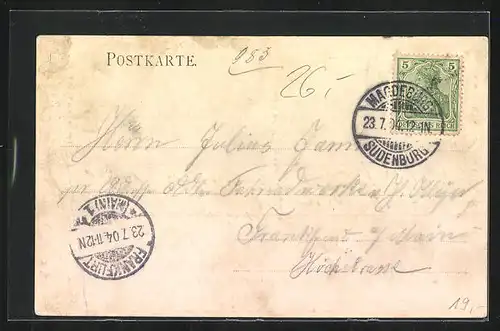 POSTKARTE.
983
26,-
5 5
MAGDEBURG
23.7.04.12-1N
SUDENBURG
Herrn Julius
per Adr. Adler Fahrradwerke
Frankfurt / Main
Höchstrasse
FRANKFURT
23.7.04.11-12N
(MAIN) 1
19,-